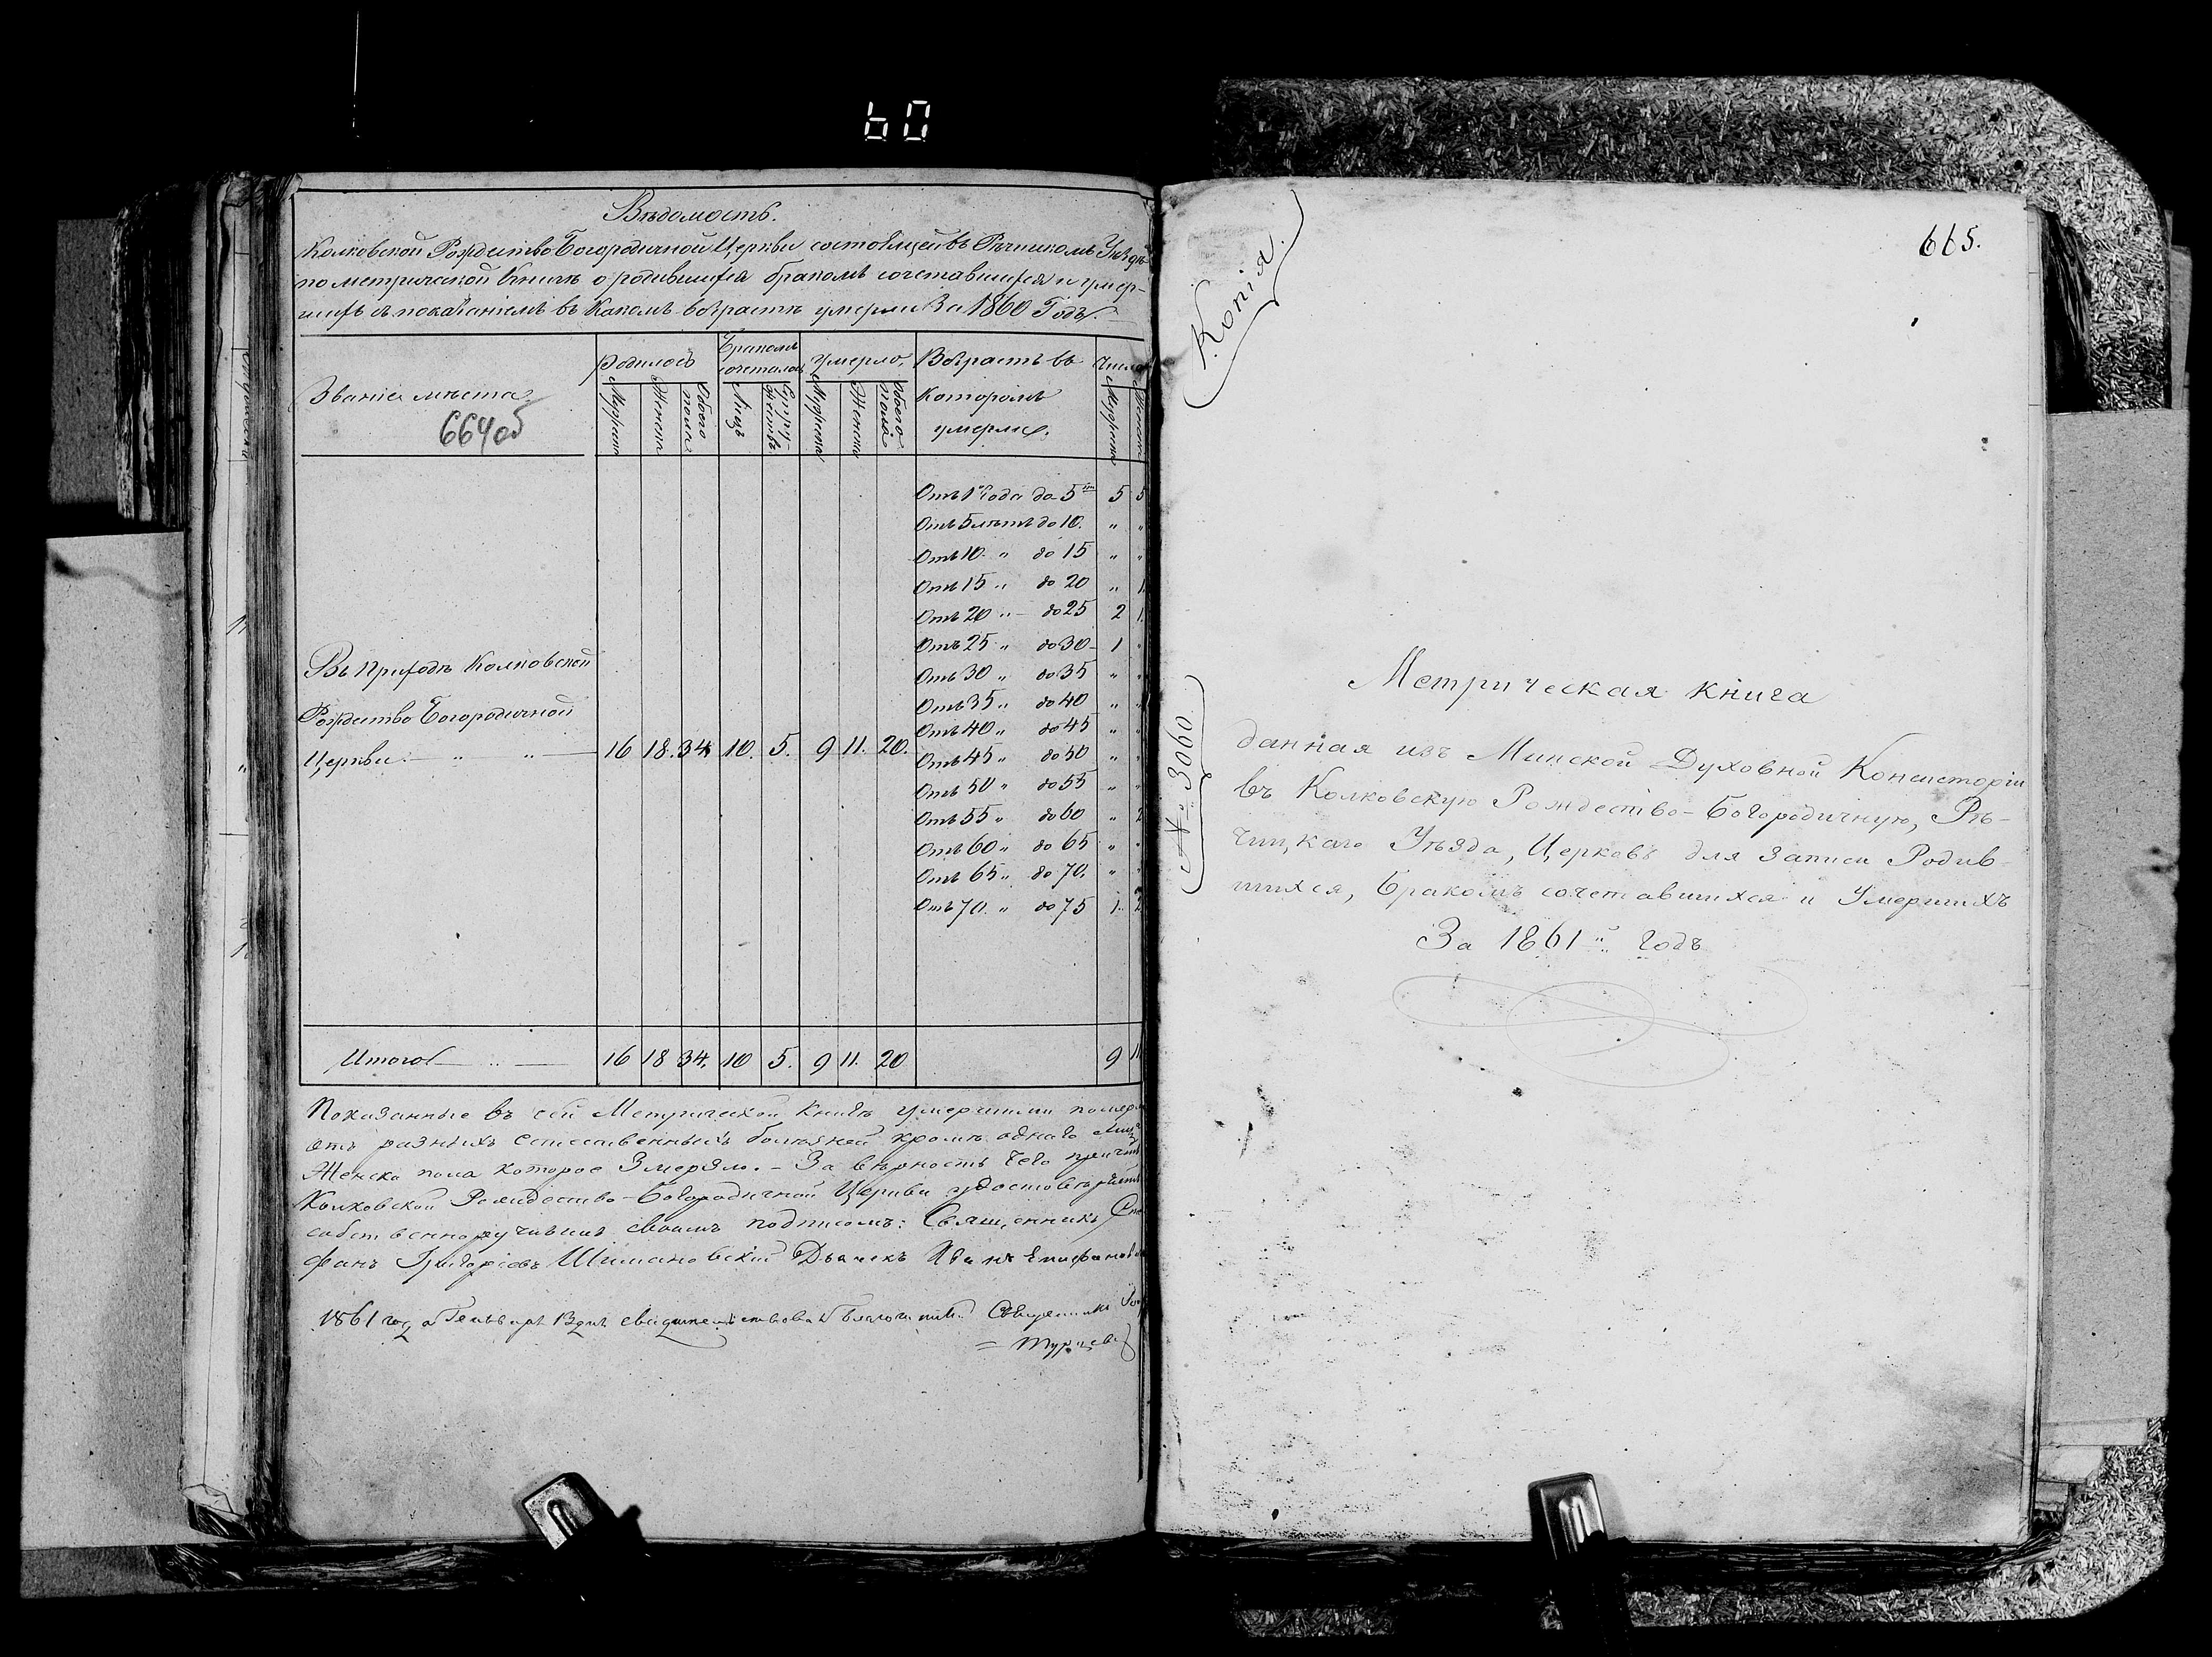 60
Вѣдомость.
Колковской Рождество Богородичной Церкви состоящей въ Рѣчицкомъ Уѣздѣ
по метрической Книгѣ о родившихся бракомъ сочетавшихся и умер-
шихъ съ показаніемъ въ какомъ возрастѣ умерли За 1860 Годъ.
Званіе мѣста
664об
Родилось
Бракомъ сочеталось
Умерло
Возрастъ въ
Которомъ
умерли.
Число
Мужеска
Женска
Обоего пола
Лицъ
Супружествъ
Мужеска
Женска
Обоего пола
Мужеска
Женска
Отъ 1 Года до 5 5 5
Отъ 5 лѣтъ до 10. " "
Отъ 10 " до 15 " "
Отъ 15 " до 20 " 1
Отъ 20 " до 25 2 1
Отъ 25 " до 30 1 "
Отъ 30 " до 35 " "
Отъ 35 " до 40 " "
Отъ 40 " до 45 " "
Отъ 45 " до 50 " "
Отъ 50 " до 55 " "
Отъ 55 " до 60 " 2
Отъ 60 " до 65 " "
Отъ 65 " до 70. " "
Отъ 70. " до 75 1. 2
Въ Приходѣ Колковской
Рождество Богородичной
Церкви 16 18. 34 10. 5. 9 11. 20.
Итого 16 18 34. 10 5. 9 11. 20 9 11
Показанные въ сей Метрической Книгѣ умершими померли
отъ разныхъ естественныхъ болѣзней кромѣ одного лица
Женска пола которое Змерзло. – За вѣрность чего причтъ
Колковской Рождество-Богородичной Церкви удостовѣряетъ
собственноручнымъ своимъ подписомъ: Священникъ Сте
фанъ Григоріевъ Шимановскій Дьячекъ Иванъ Епифановъ
1861 года Генваря дня свидѣтельствовалъ Благочинный Священникъ
Турцевъ
665.
Копія.
№ 3060
Метрическая книга
данная изъ Минской Духовной Консисторіи
въ Колковскую Рождество-Богородичную, Рѣ-
чицкаго Уѣзда, Церковь для записи Родив-
шихся, Бракомъ сочетавшихся и Умершихъ
За 1861й годъ